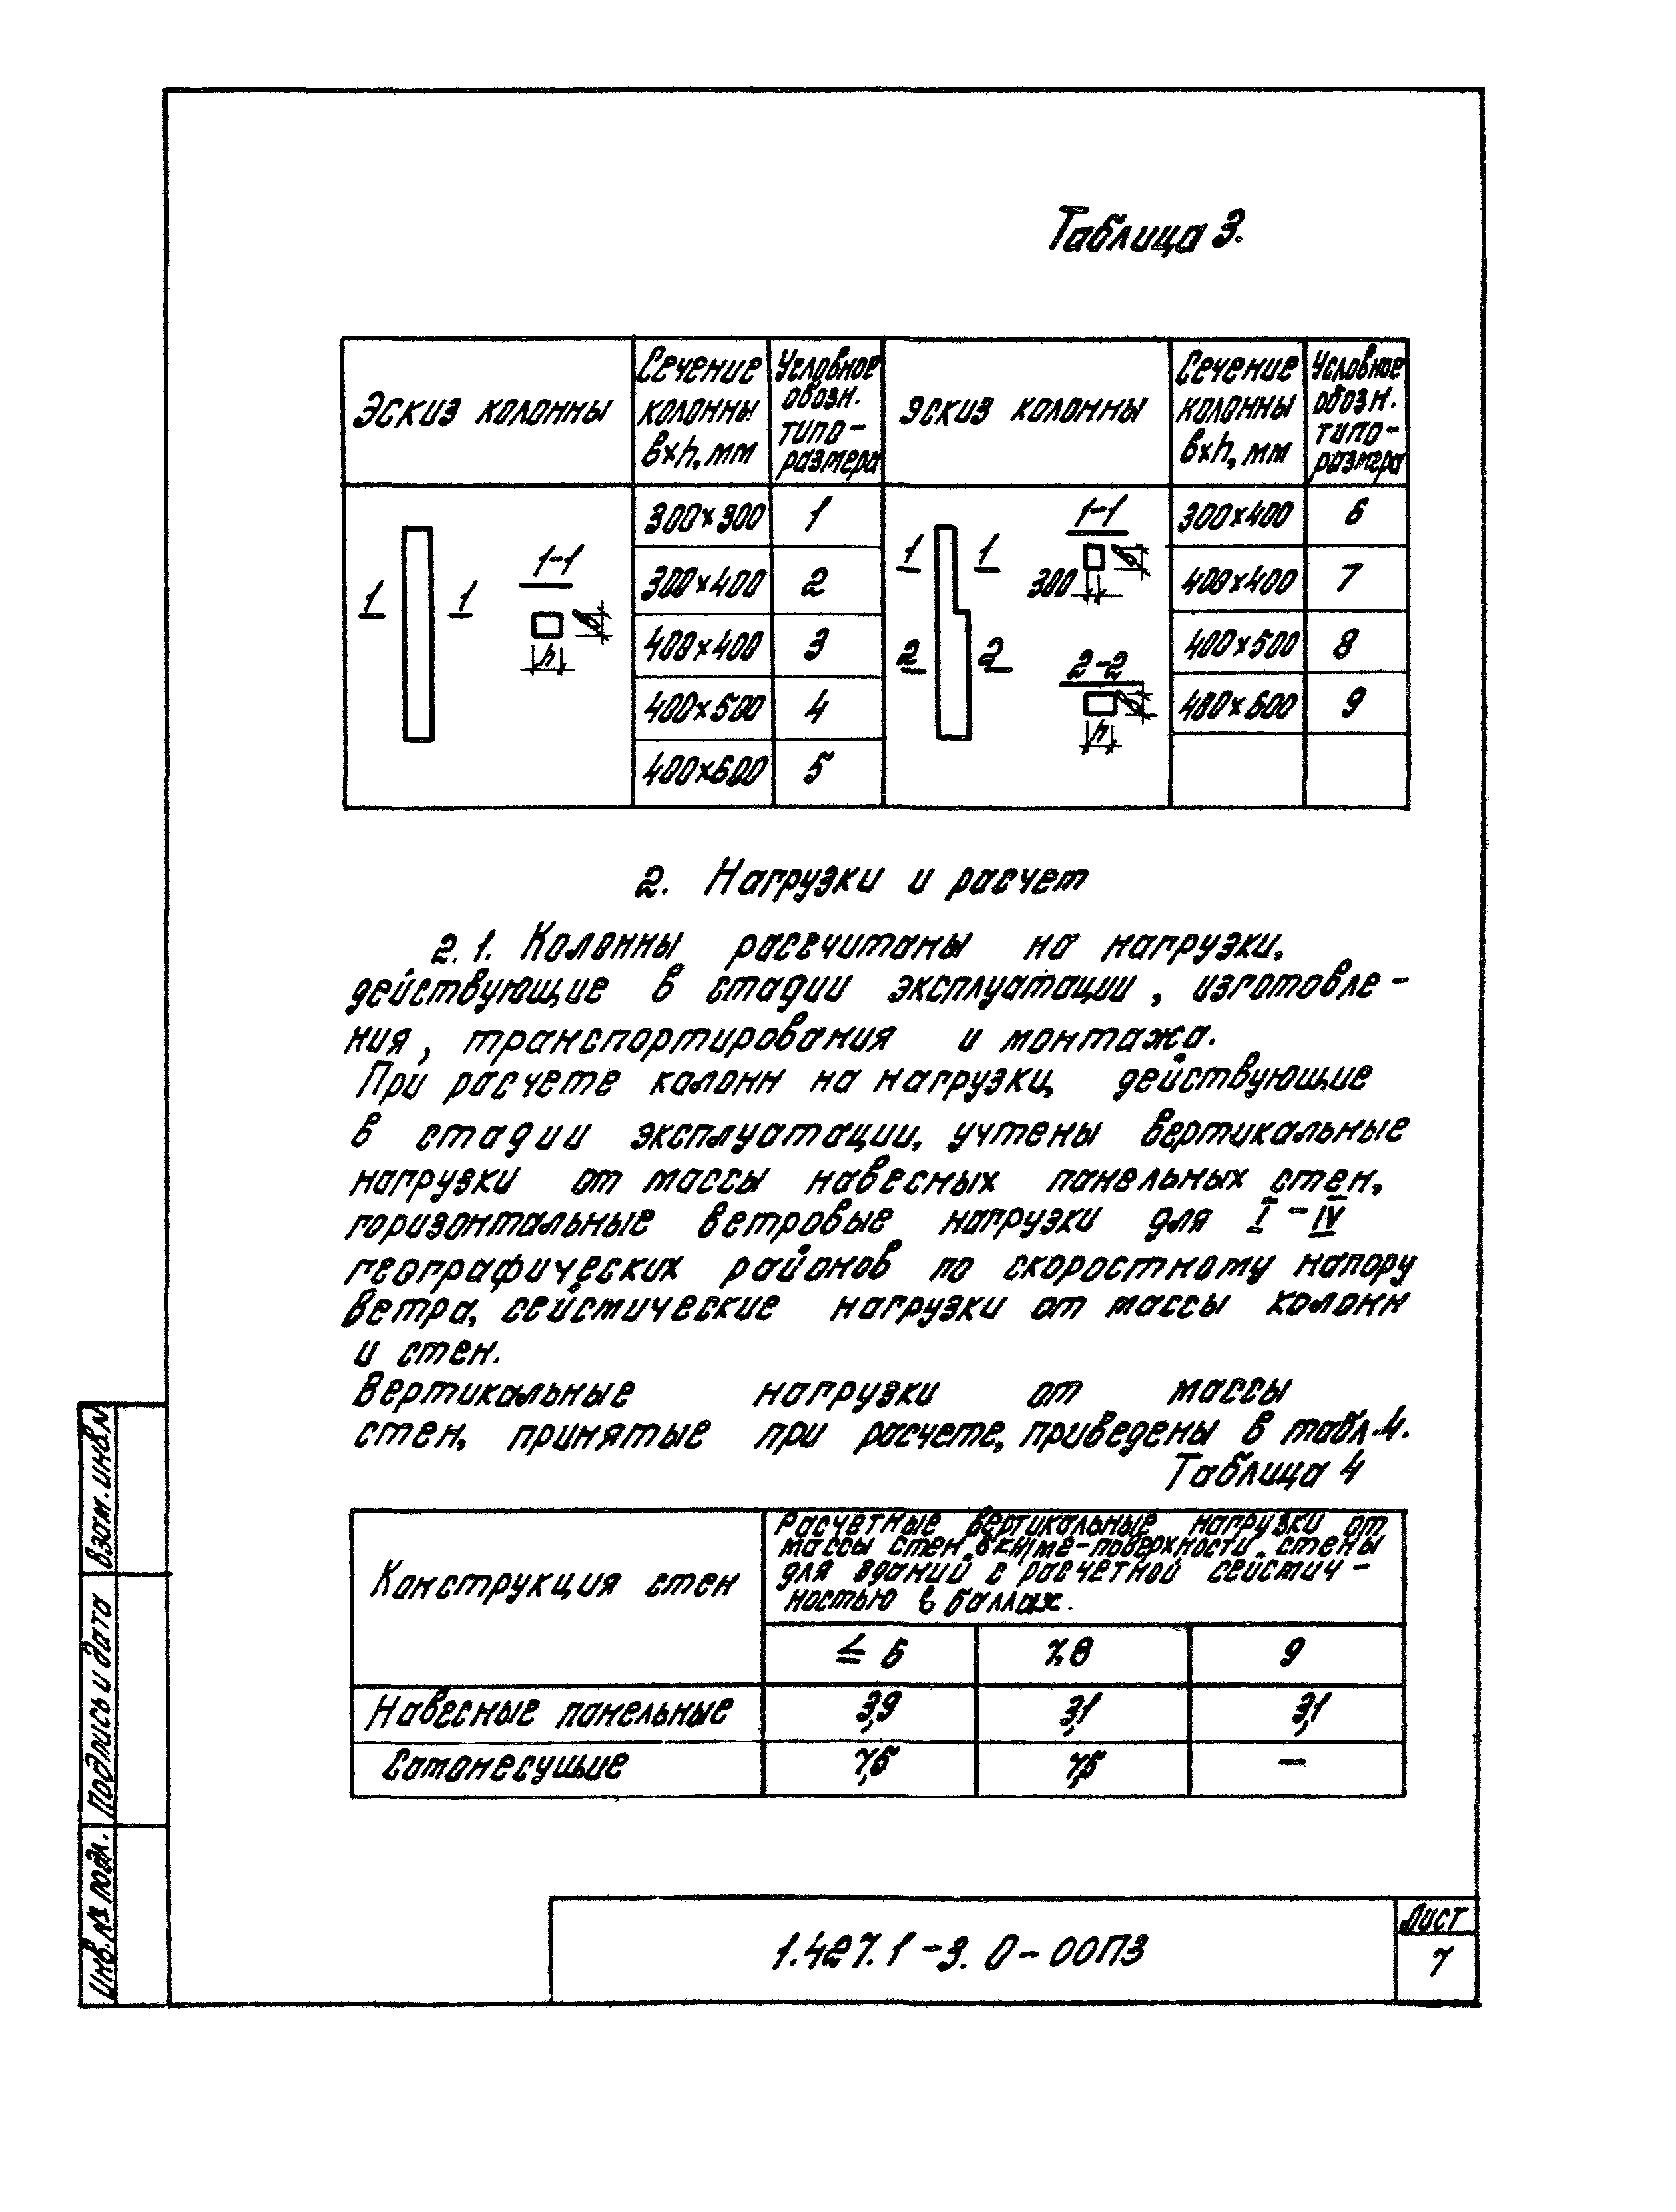 Таблица 3.
Эскиз колонны
Сечение
колонны
вхh, мм
Условное
обозн.
типо-
размера
Эскиз колонны
Сечение
колонны
вхh, мм
Условное
обозн.
типо-
размера
1 1
1-1
в
h
300×300 1
300×400 2
400×400 3
400×500 4
400×600 5
1 1
2 2
1-1
300
в
2-2
в
h
300×400 6
400×400 7
400×500 8
400×600 9
2. Нагрузки и расчет
2.1. Колонны рассчитаны на нагрузки,
действующие в стадии эксплуатации, изготовле-
ния, транспортирования и монтажа.
При расчете колонн на нагрузки, действующие
в стадии эксплуатации, учтены вертикальные
нагрузки от массы навесных панельных стен,
горизонтальные ветровые нагрузки для I-IV
географических районов по скоростному напору
ветра, сейсмические нагрузки от массы колонн
и стен.
Вертикальные нагрузки от массы
стен, принятые при расчете, приведены в табл.4.
Таблица 4
Конструкция стен
Расчетные вертикальные нагрузки от
массы стен в кН/м2-поверхности стены
для зданий с расчетной сейсмич-
ностью в баллах.
≤ 6 7,8 9
Навесные панельные 3,9 3,1 3,1
Самонесущие 7,5 7,5 —
Взам. инв.№
Подпись и дата
Инв.№ подл.
1.427.1-3.0-00ПЗ
Лист
7